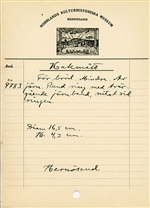 NORRLANDS KULTURHISTORISKA MUSEUM
HÄRNÖSAND
Kakmått
9783
För bröd. Mindre. Av
järn. Rund ring med tvär-
gående järnband, nitat vid
ringen.
Diam 16,5 cm.
H. 4,3 cm.
Hernösand